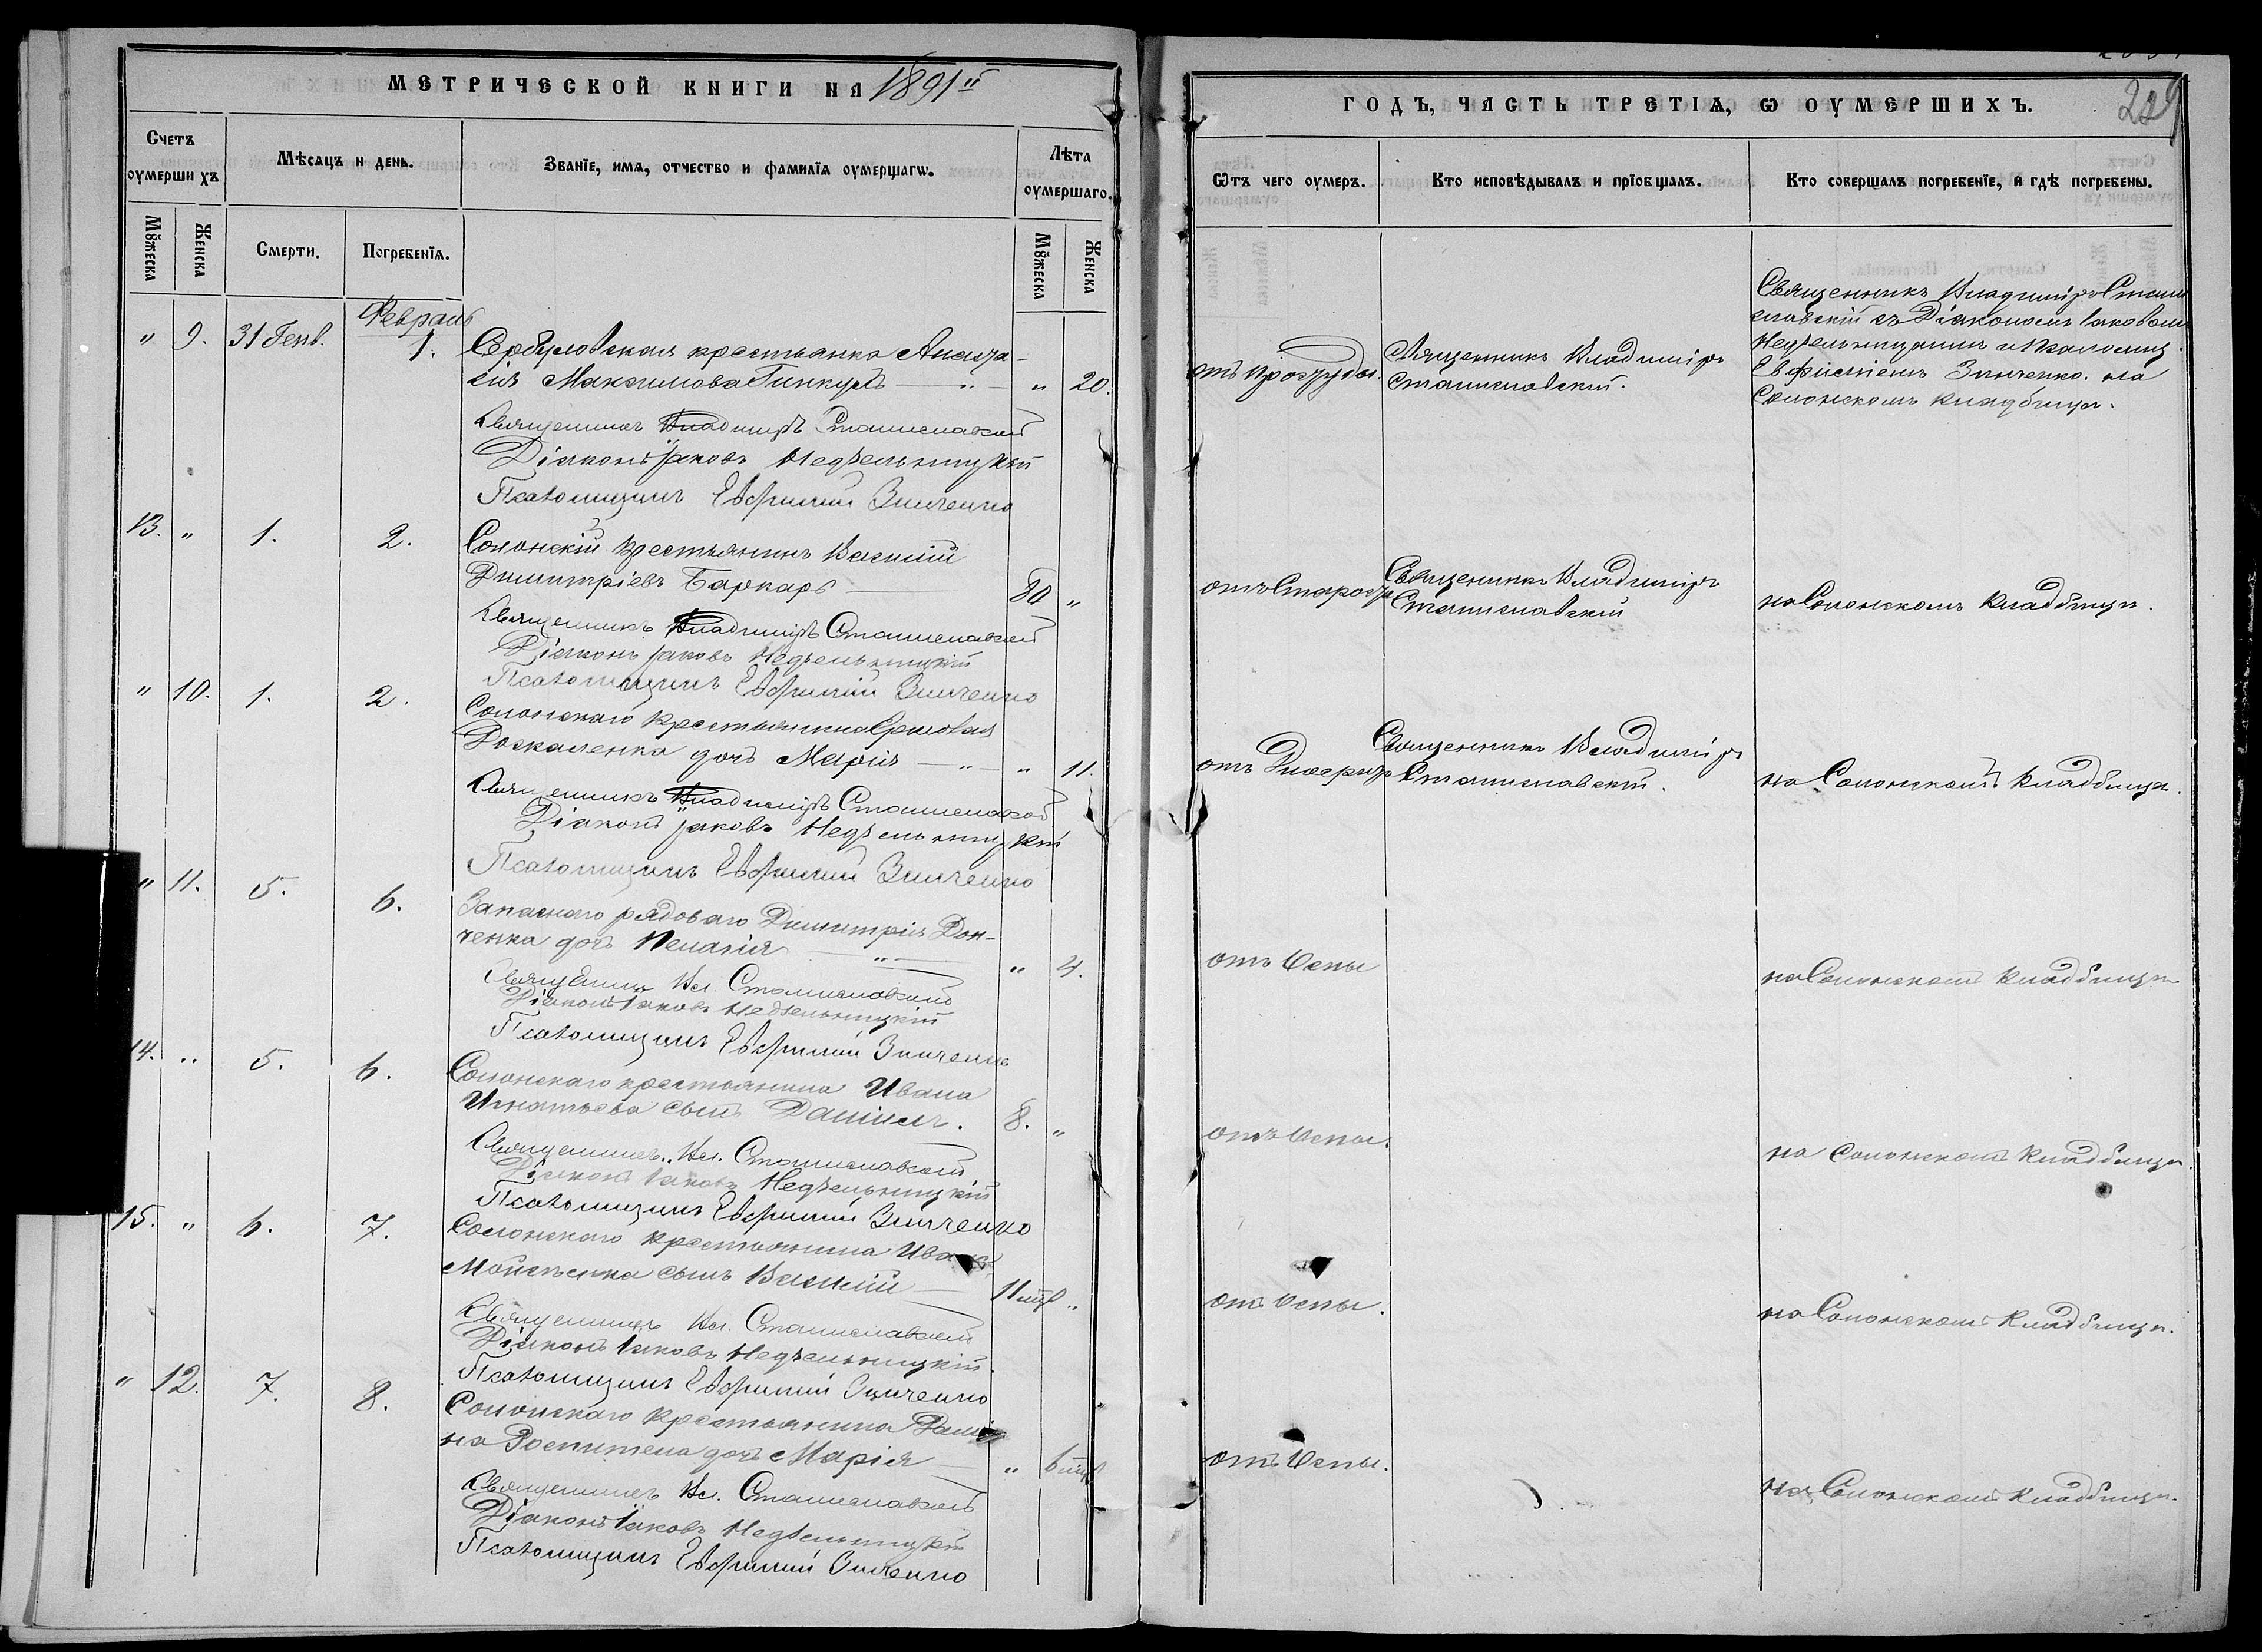 МЕТРИЧЕСКОЙ КНИГИ НА 1891й
Счетъ оумершихъ
Мѣсяцъ и день.
Званїе, имя, отчество и фамилїя оумершагѡ.
Лѣта оумершаго.
Мꙋжеска
Женска
Смерти.
Погребенїя.
Мꙋжеска
Женска
Февраль
" 9. 31 Генв. 1.
крестьянка Анаста-
сія Максимова " 20.
Священникъ Владиміръ Станиславскій
Діаконъ Іаковъ Недѣльницкій
Псаломщикъ Евфимій Зинченко
13. " 1. 2. Солонскій крестьянинъ Василій
Димитріевъ Баркарь 80 "
Священникъ Владиміръ Станиславскій
Діаконъ Іаковъ Недѣльницкій
Псаломщикъ Евфимій Зинченко
" 10. 1. 2. Солонскаго крестьянина
Доскаленка дочь Марія " 11.
Священникъ Владиміръ Станиславскій
Діаконъ Іаковъ Недѣльницкій
Псаломщикъ Евфимій Зинченко
" 11. 5. 6. Запаснаго рядоваго Димитрія Дон-
ченка дочь Пелагія " 4.
Священникъ Вл. Станиславскій
Діаконъ Іаковъ Недѣльницкій
Псаломщикъ Евфимій Зинченко
14. " 5. 6. Солонскаго крестьянина Ивана
Игнатьева сынъ Даніилъ. 8. "
Священникъ Вл. Станиславскій
Діаконъ Іаковъ Недѣльницкій
Псаломщикъ Евфимій Зинченко
15. " 6. 7. Солонскаго крестьянина Ивана
Мойсеенка сынъ Василій 11 мѣс "
Священникъ Вл. Станиславскій
Діаконъ Іаковъ Недѣльницкій.
Псаломщикъ Евфимій Зинченко
" 12. 7. 8. Солонскаго крестьянина
дочь Марія " 6 мѣс
Священникъ Вл. Станиславскій
Діаконъ Іаковъ Недѣльницкій
Псаломщикъ Евфимій Зинченко
ГОДЪ, ЧАСТЬ ТРЕТІѦ, Ѡ ОУМЕРШИХЪ.
Ѿтъ чего оумеръ.
Кто исповѣдывалъ и прїобщалъ.
Кто совершалъ погребенїе, и гдѣ погребены.
отъ простуды.
Священникъ Владиміръ
Станиславскій.
Священникъ Владиміръ Стани
славскій съ Діакономъ Іаковомъ
Недѣльницкимъ и Псаломщ.
Евфиміемъ Зинченко. на
Солонскомъ кладбищѣ.
отъ Старости
Священникъ Владиміръ
Станиславскій
на Солонскомъ кладбищѣ.
отъ
Священникъ Владиміръ
Станиславскій.
на Солонскомъ кладбищѣ.
отъ Оспы
на Солонскомъ кладбищѣ
отъ Оспы.
на Солонскомъ кладбищѣ.
отъ Оспы.
на Солонскомъ кладбищѣ.
отъ Оспы.
на Солонскомъ кладбищѣ.